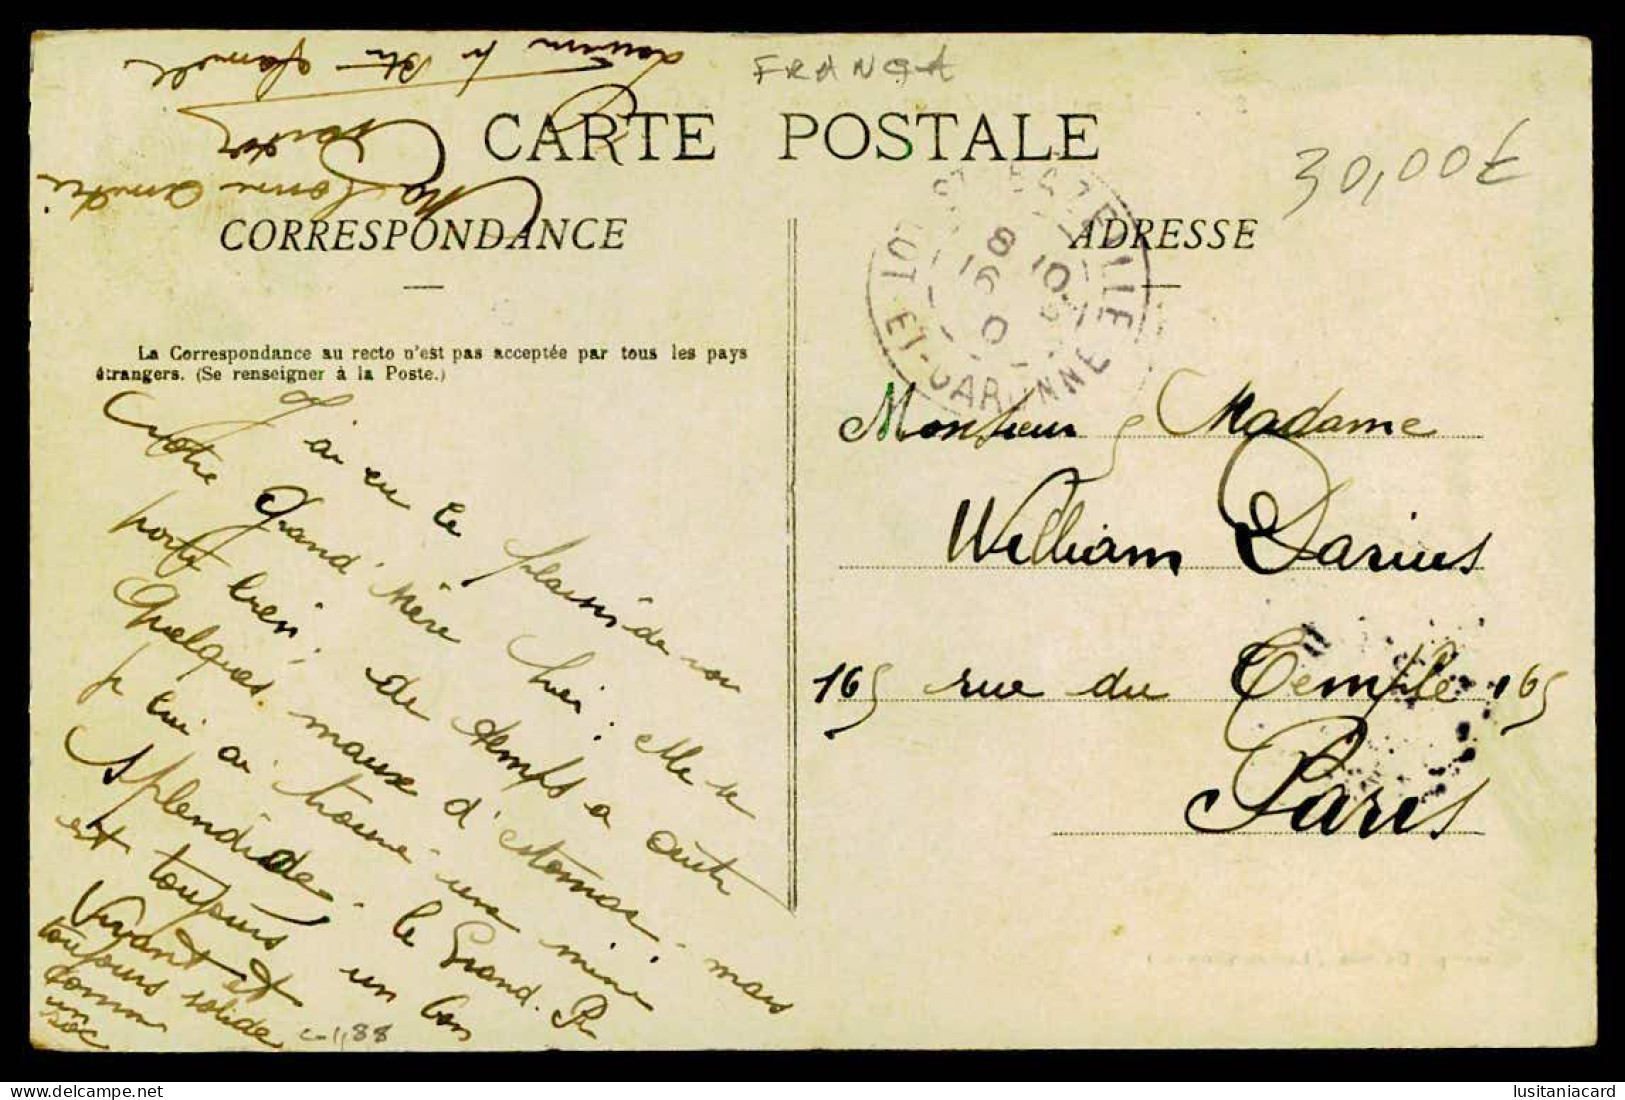 FRANÇA
CARTE POSTALE
30,00£
CORRESPONDANCE
ADRESSE
La Correspondance au recto n'est pas acceptée par tous les pays
étrangers. (Se renseigner à la Poste.)
LOT-ET-GARONNE
J'ai eu le plaisir de voir
votre Grand'Mère hier: elle se
porte bien; de temps a autre
quelques maux d'estomac, mais
je lui ai trouvé une mine
splendide. le Grand. Pr
est toujours un bon
vivant et
toujours solide
comme
un
roc
Ma bonne amitié
c-1,88
Monsieur, Madame
William Darius
165 rue du Temple 165
Paris
delcampe.net
lusitaniacard